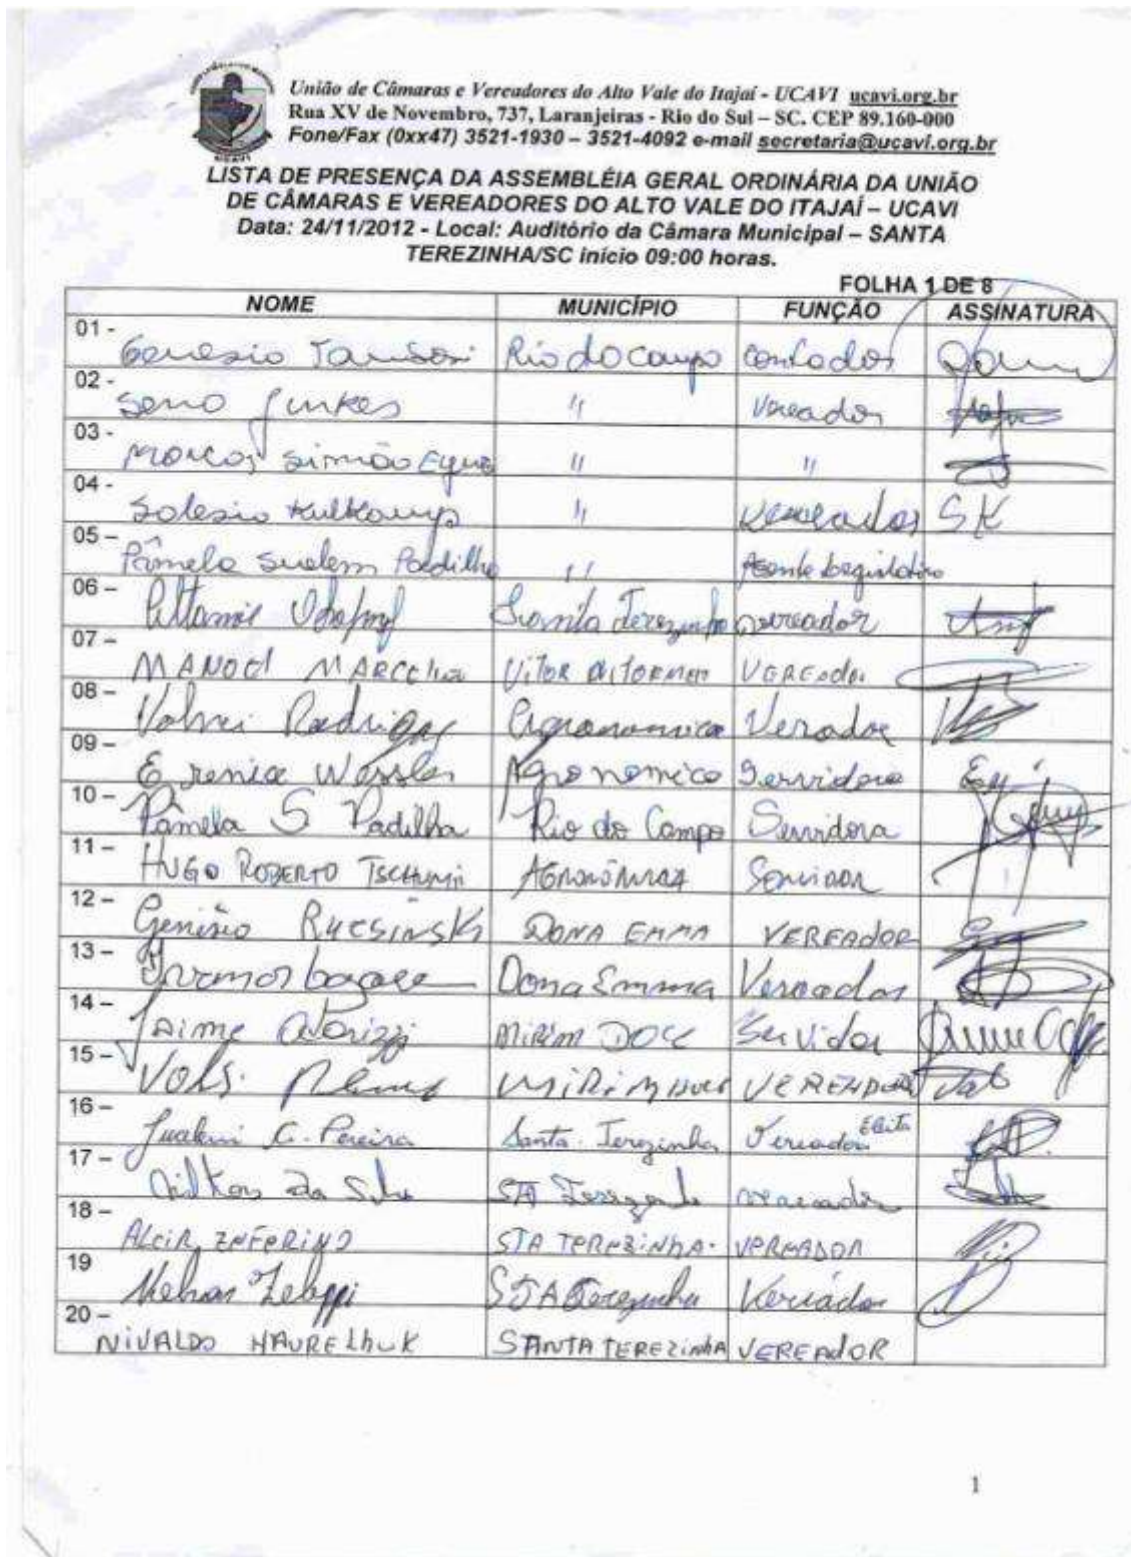 União de Câmaras e Vereadores do Alto Vale do Itajaí - UCAVI ucavi.org.br
Rua XV de Novembro, 737, Laranjeiras - Rio do Sul – SC. CEP 89.160-000
Fone/Fax (0xx47) 3521-1930 – 3521-4092 e-mail secretaria@ucavi.org.br
UCAVI
LISTA DE PRESENÇA DA ASSEMBLÉIA GERAL ORDINÁRIA DA UNIÃO
DE CÂMARAS E VEREADORES DO ALTO VALE DO ITAJAÍ – UCAVI
Data: 24/11/2012 - Local: Auditório da Câmara Municipal – SANTA
TEREZINHA/SC início 09:00 horas.
FOLHA 1 DE 8
NOME MUNICÍPIO FUNÇÃO ASSINATURA
01 - Genesio Rio do Campo Contador
02 - Seno Junkes " Vereador
03 - Marcos Simião " "
04 - Solesio Kulkamp " Vereador SK
05 – Pâmela Suelem Padilha " Agente Legislativo
06 – Santa Terezinha vereador
07 – MANOEL VEREADOR
08 – Valnei Rodrigues Agronomica
09 – Erenice Wessler Agronomica Servidora
10 – Pâmella S Padilha Rio do Campo Servidora
11 – HUGO ROBERTO AGRONÔMICA SERVIDOR
12 – Genésio RUCSINSKI DONA EMMA VEREADOR
13 – Dona Emma Vereador
14 – Jaime MIRIM DOCE Servidor
15 – MIRIM DOCE VEREADOR
16 – C. Pereira Santa Terezinha Vereadora Eleita
17 – Nilton Da Silva STA Terezinha vereador
18 – ALCIR ZEFERINO STA TEREZINHA. VEREADOR
19 STA Terezinha Vereador
20 – NIVALDO HAURELHUK SANTA TEREZINHA VEREADOR
1